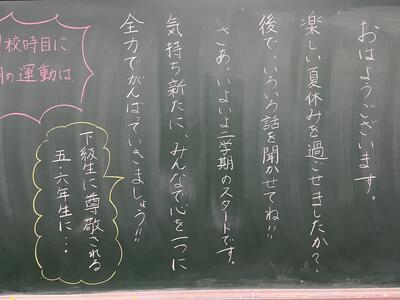 おはようございます。
楽しい夏休みを過ごせましたか?
後で、いろいろ話を聞かせてね!!
さあ、いよいよ二学期のスタートです。
気持ち新たに、みんなで心を一つに
全力でがんばっていきましょう!!
下級生に尊敬される
五・六年生に…
校時目に
の運動は